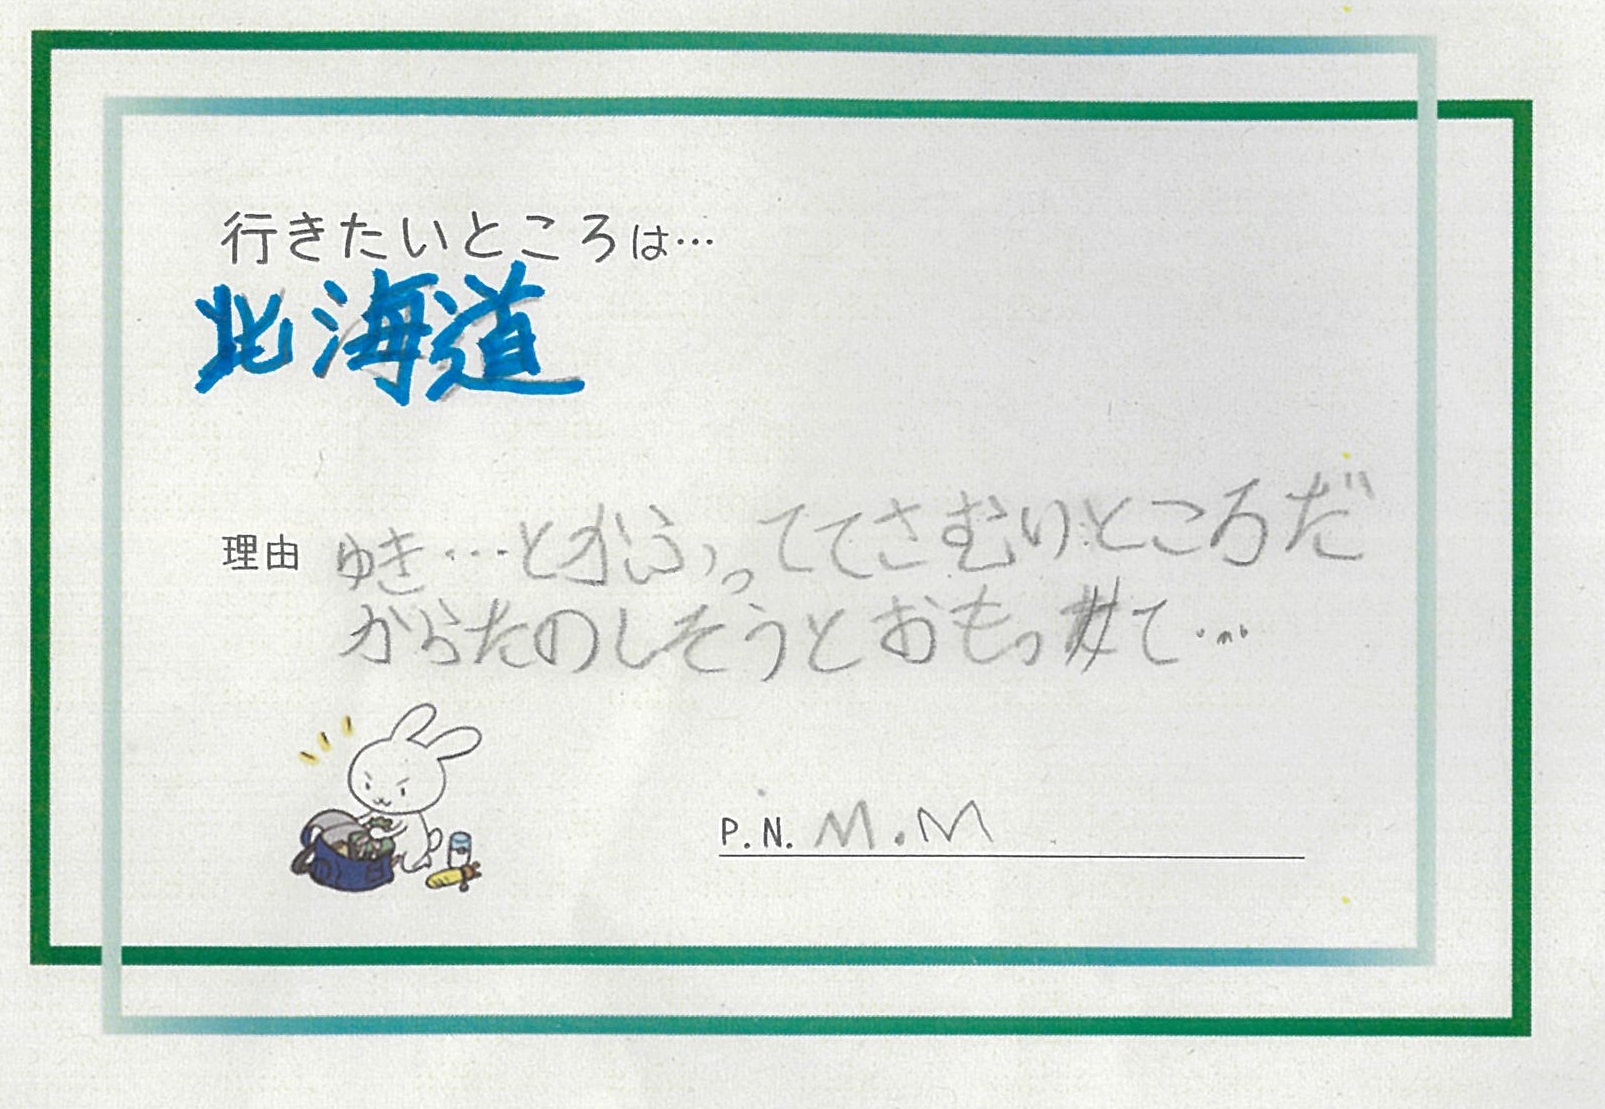 行きたいところは…
北海道
理由 ゆき…とかふっててさむいところだ
からたのしそうとおもって…
P.N. M.M